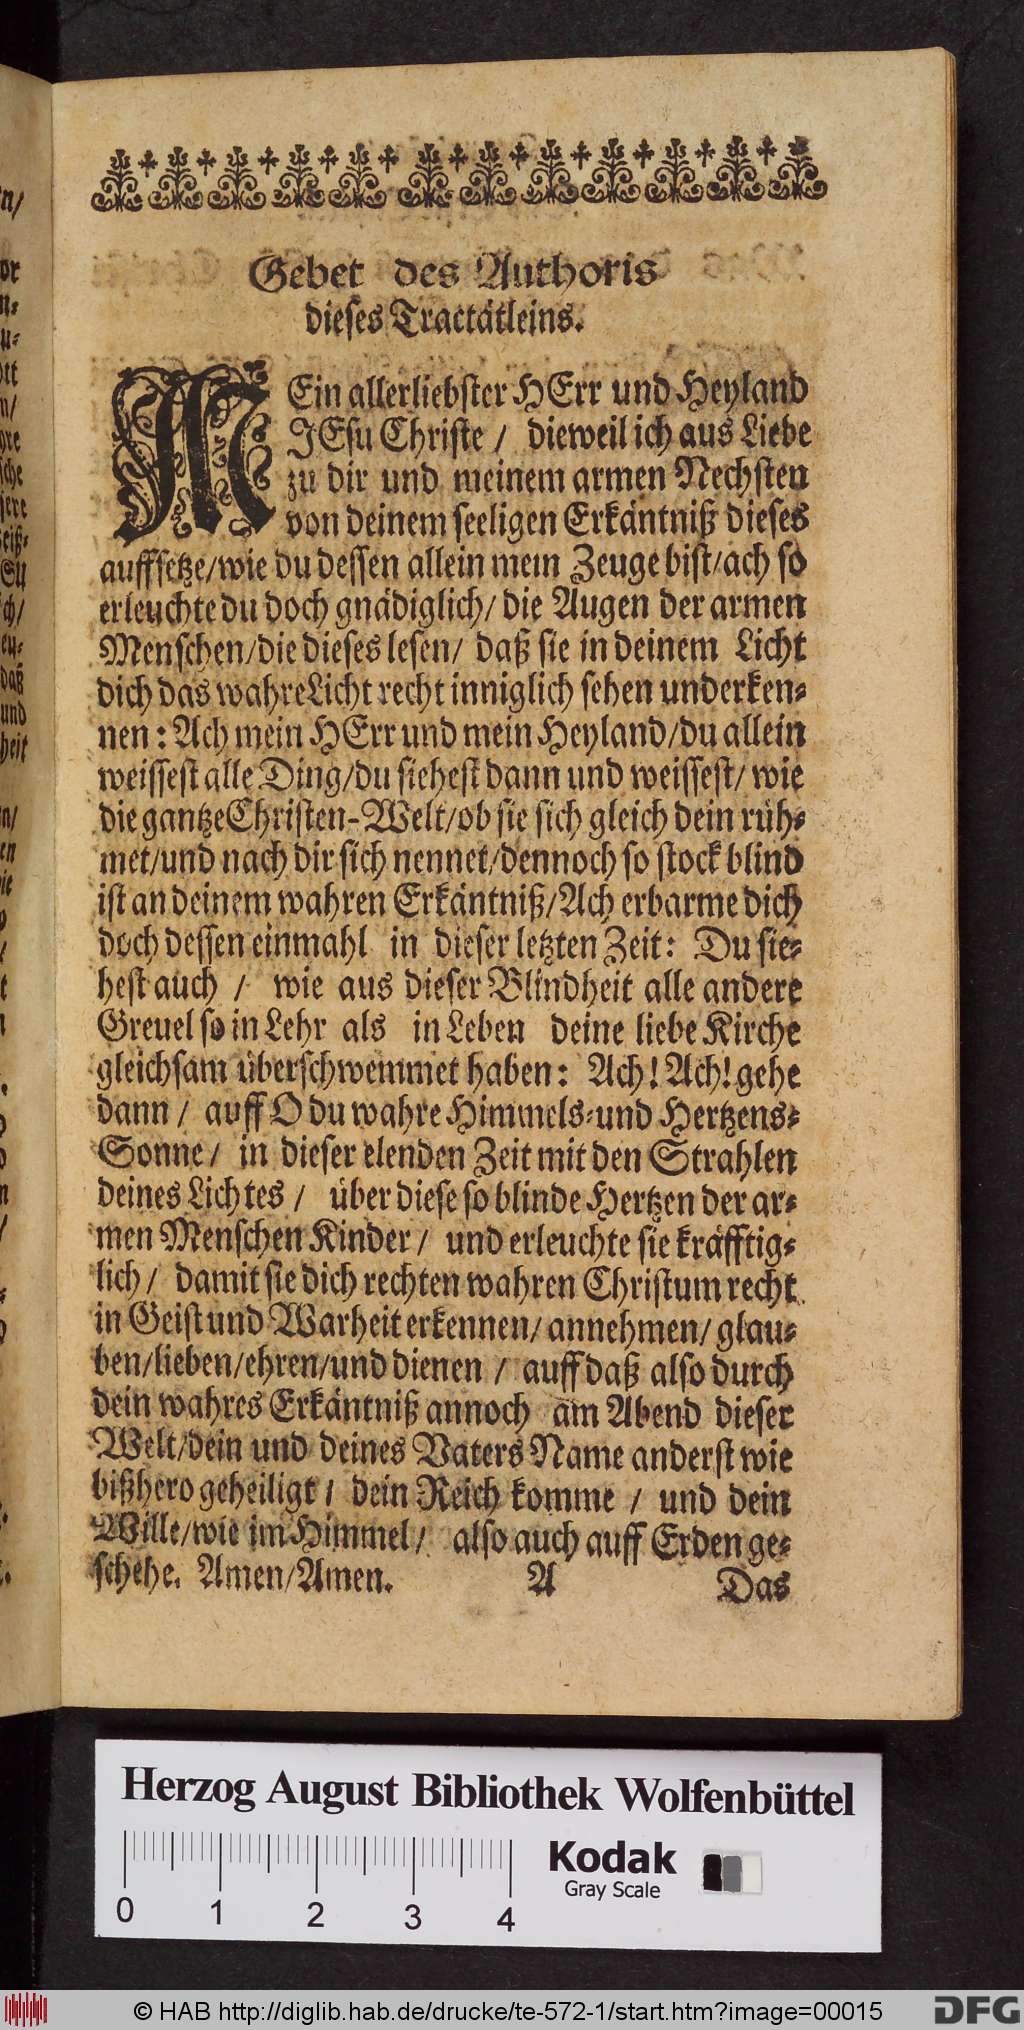 Gebet des Authoris
dieses Tractätleins.
MEin allerliebster HErr und Heyland
JEsu Christe / dieweil ich aus Liebe
zu dir und meinem armen Nechsten
von deinem seeligen Erkäntniß dieses
auffsetze/wie du dessen allein mein Zeuge bist/ach so
erleuchte du doch gnädiglich/ die Augen der armen
Menschen/die dieses lesen/ daß sie in deinem Licht
dich das wahre Licht recht inniglich sehen und erken-
nen: Ach mein HErr und mein Heyland/du allein
weissest alle Ding/du siehest dann und weissest/ wie
die gantze Christen-Welt/ob sie sich gleich dein rüh-
met/und nach dir sich nennet/dennoch so stock blind
ist an deinem wahren Erkäntniß/Ach erbarme dich
doch dessen einmahl in dieser letzten Zeit: Du sie-
hest auch / wie aus dieser Blindheit alle andere
Greuel so in Lehr als in Leben deine liebe Kirche
gleichsam überschwemmet haben: Ach! Ach! gehe
dann / auff O du wahre Himmels-und Hertzens-
Sonne / in dieser elenden Zeit mit den Strahlen
deines Lichtes / über diese so blinde Hertzen der ar-
men Menschen Kinder / und erleuchte sie kräfftig-
lich / damit sie dich rechten wahren Christum recht
in Geist und Warheit erkennen/ annehmen/ glau-
ben/lieben/ehren/und dienen / auff daß also durch
dein wahres Erkäntniß annoch am Abend dieser
Welt/dein und deines Vaters Name anderst wie
bißhero geheiligt / dein Reich komme / und dein
Wille/wie im Himmel / also auch auff Erden ge-
schehe. Amen/Amen. A Das
Herzog August Bibliothek Wolfenbüttel
0 1 2 3 4
Kodak
Gray Scale
© HAB http://diglib.hab.de/drucke/te-572-1/start.htm?image=00015
DFG